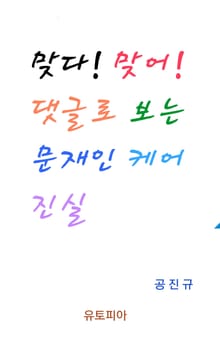 맞다! 맞어!
댓글로 보는
문재인 케어
진실
공진규
유토피아